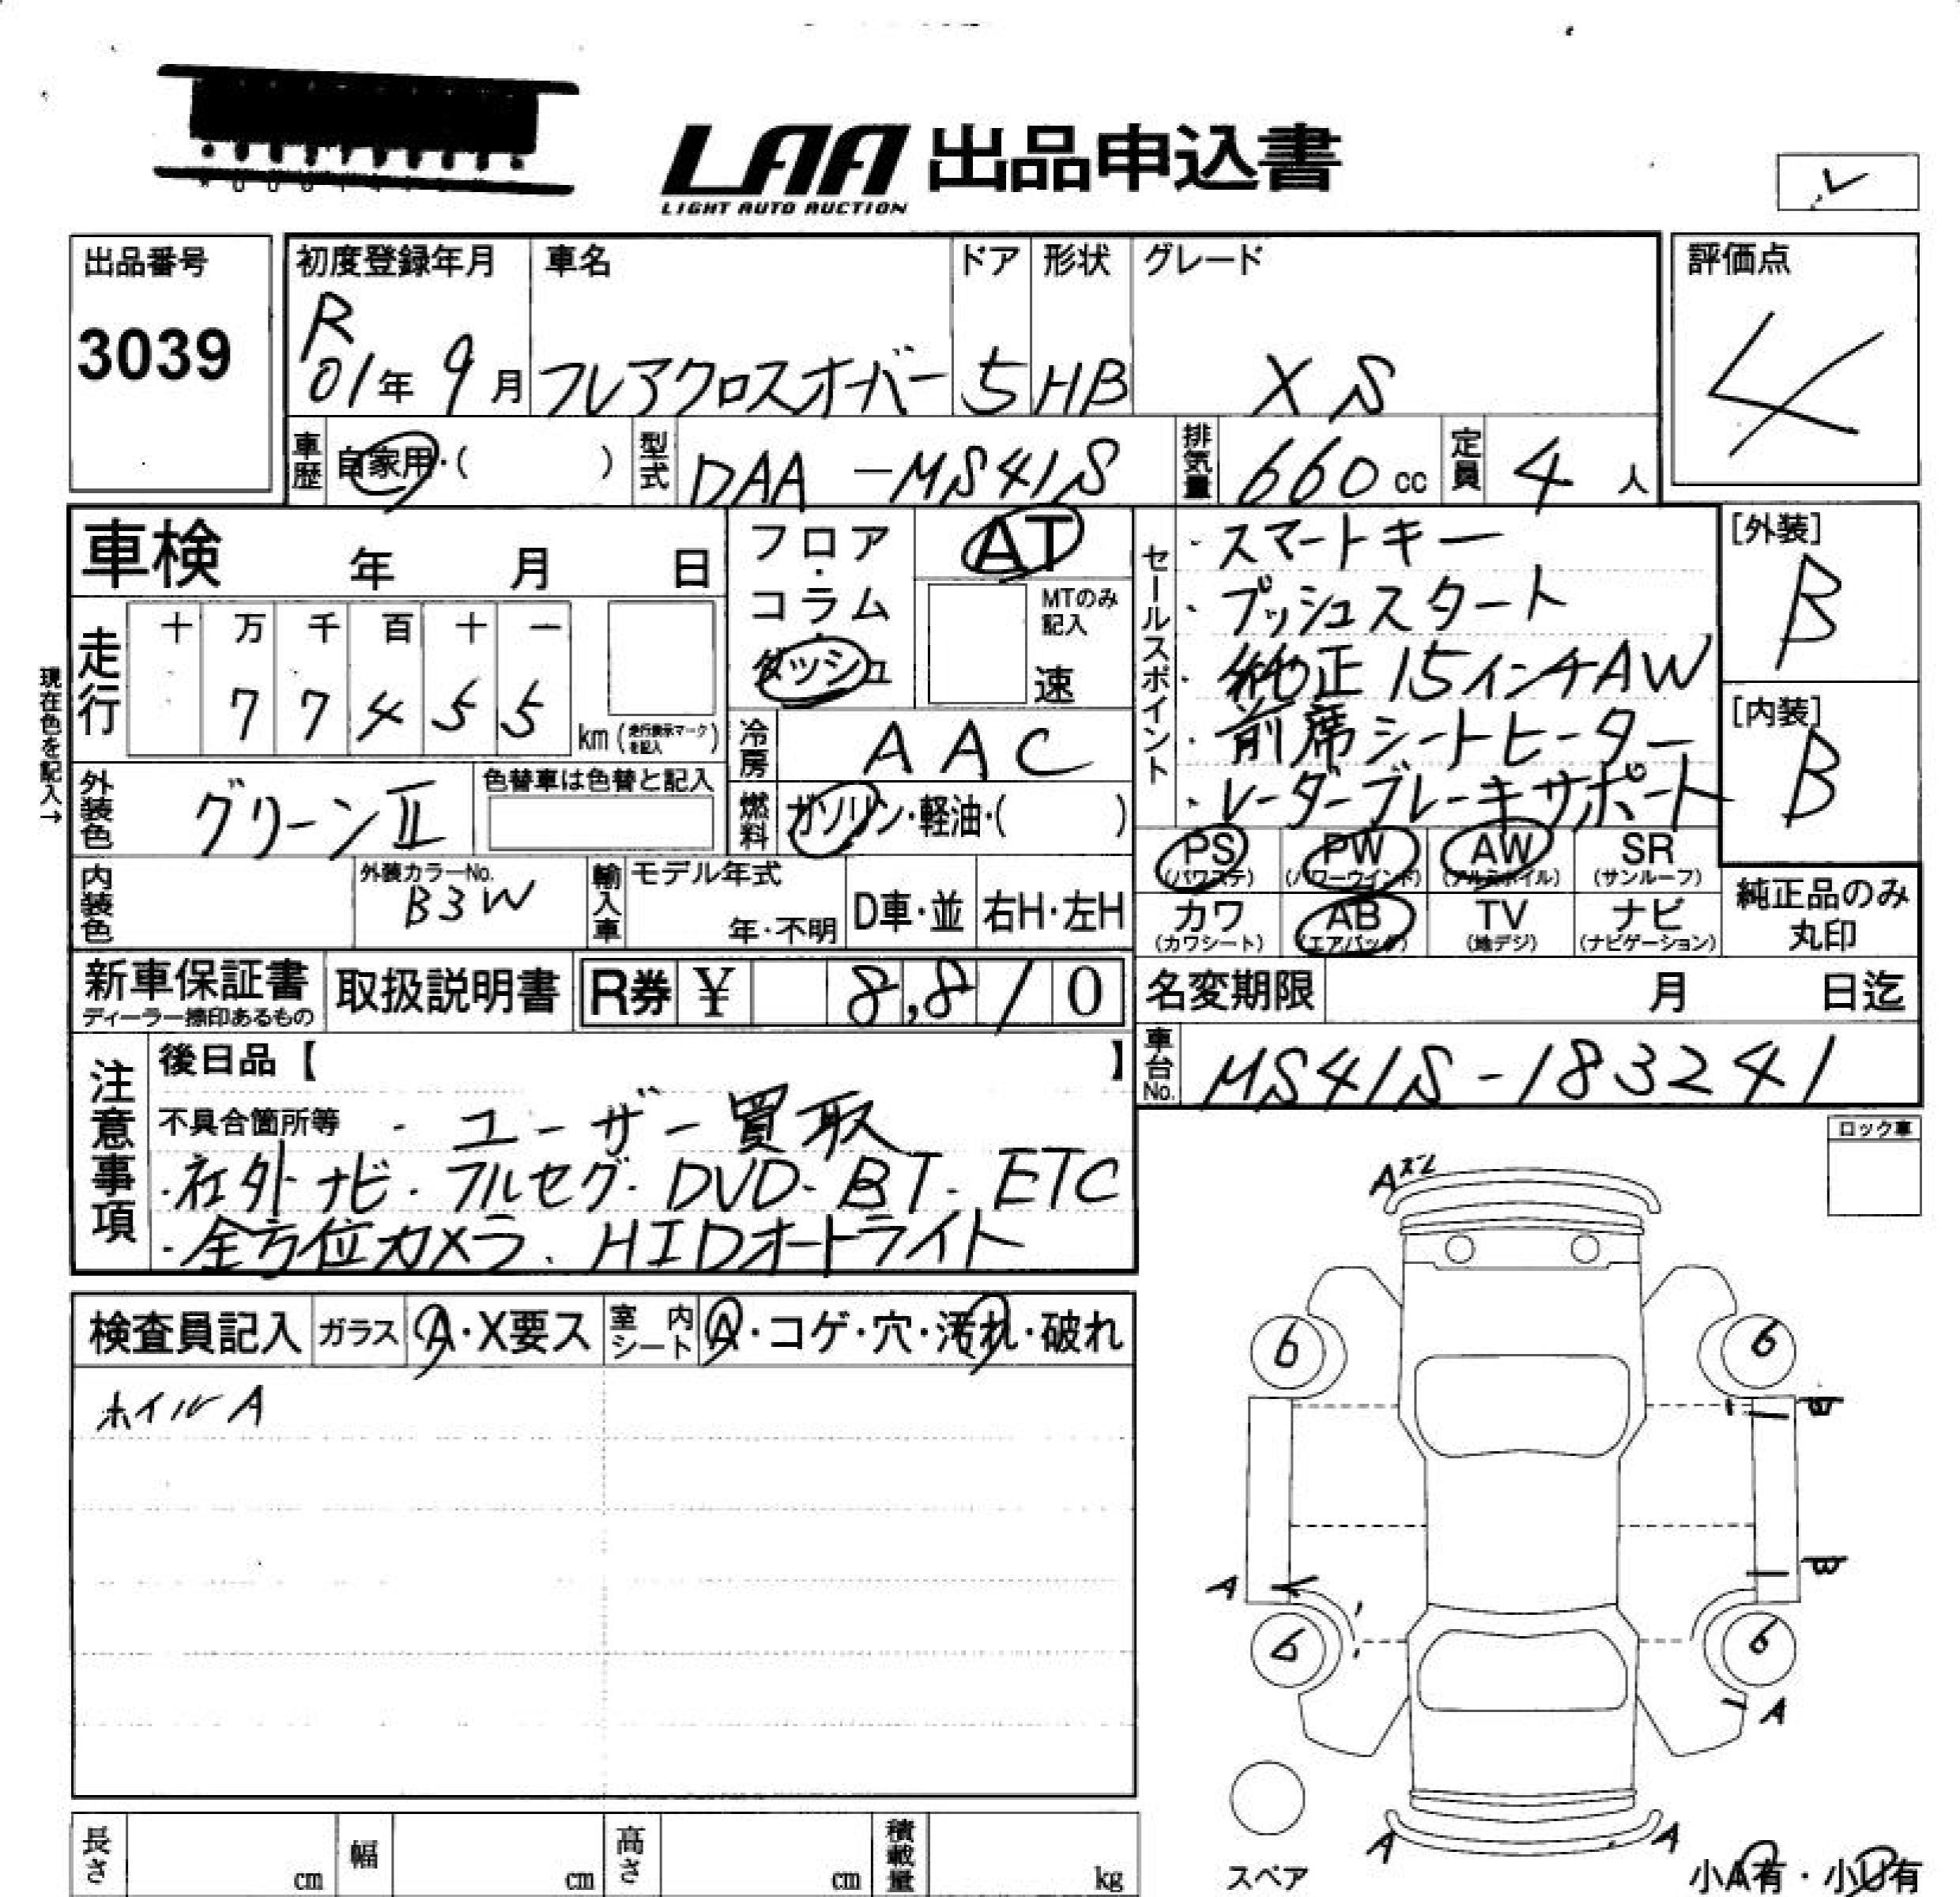 LAA 出品申込書
LIGHT AUTO AUCTION
出品番号
3039
初度登録年月
R
01年 9月
車名
フレアクロスオーバー
ドア
5
形状
HB
グレード
XS
評価点
4
車歴
自家用・( )
型式
DAA-MS41S
排気量
660 cc
定員
4 人
車検 年 月 日
現在色を記入→
走行
十 万 千 百 十 一
7 7 4 5 5
km (走行表示マークを記入)
フロア・コラム・ダッシュ
AT
MTのみ記入
速
冷房
AAC
燃料
ガソリン・軽油・( )
外装色
グリーンⅡ
色替車は色替と記入
内装色
外装カラーNo.
B3W
輸入車
モデル年式
年・不明
D車・並
右H・左H
セールスポイント
・スマートキー
・プッシュスタート
・純正15インチAW
・前席シートヒーター
・レーダーブレーキサポート
[外装]
B
[内装]
B
PS (パワステ)
PW (パワーウインド)
AW (アルミホイル)
SR (サンルーフ)
カワ (カワシート)
AB (エアバック)
TV (地デジ)
ナビ (ナビゲーション)
純正品のみ丸印
新車保証書
ディーラー捺印あるもの
取扱説明書
R券 ¥ 8,8/0
名変期限 月 日迄
車台No.
MS41S-183241
注意事項
後日品【 】
不具合箇所等 ・ユーザー買取
・社外ナビ・フルセグ・DVD・BT・ETC
・全方位カメラ・HIDオートライト
ロック車
検査員記入
ガラス
A・X要ス
室内シート
A・コゲ・穴・汚れ・破れ
ホイルA
A
6
6
B
B
A
6
6
A
A
A
スペア
小A有・小U有
長さ cm
幅 cm
高さ cm
積載量 kg